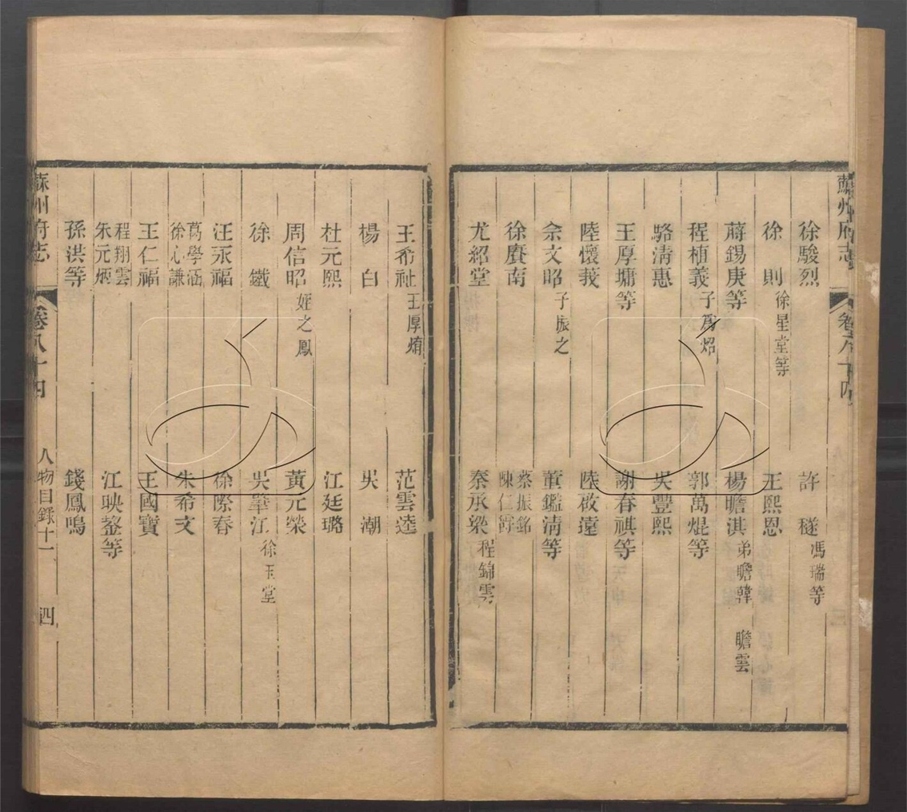 蘇州府志
卷八十四
徐駿烈
許䅁馮瑞等
徐則徐星堂等
王熙恩
蔣錫庚等
楊瞻淇弟瞻韓 瞻雲
程植義子爲炤
郭萬焜等
駱清惠
吳豐熙
王厚墉等
謝春祺等
陸懷莪
陸
余文昭子振之
黃鑑清等
徐賡南
蔡振銘
陳仁
尤紹堂
秦承梁程錦雲
王希祉王厚
范雲逵
楊白
吳潮
杜元熙
江廷璐
周信昭姪之鳳
黃元榮
徐鐵
吳肇江徐玉堂
汪永福
徐際春
葛學涵
徐元謙
朱希文
王仁福
王國寶
程翔雲
朱元炳
江映蓥等
孫洪等
錢鳳鳴
蘇州府志
卷八十四
人物目錄十一
四